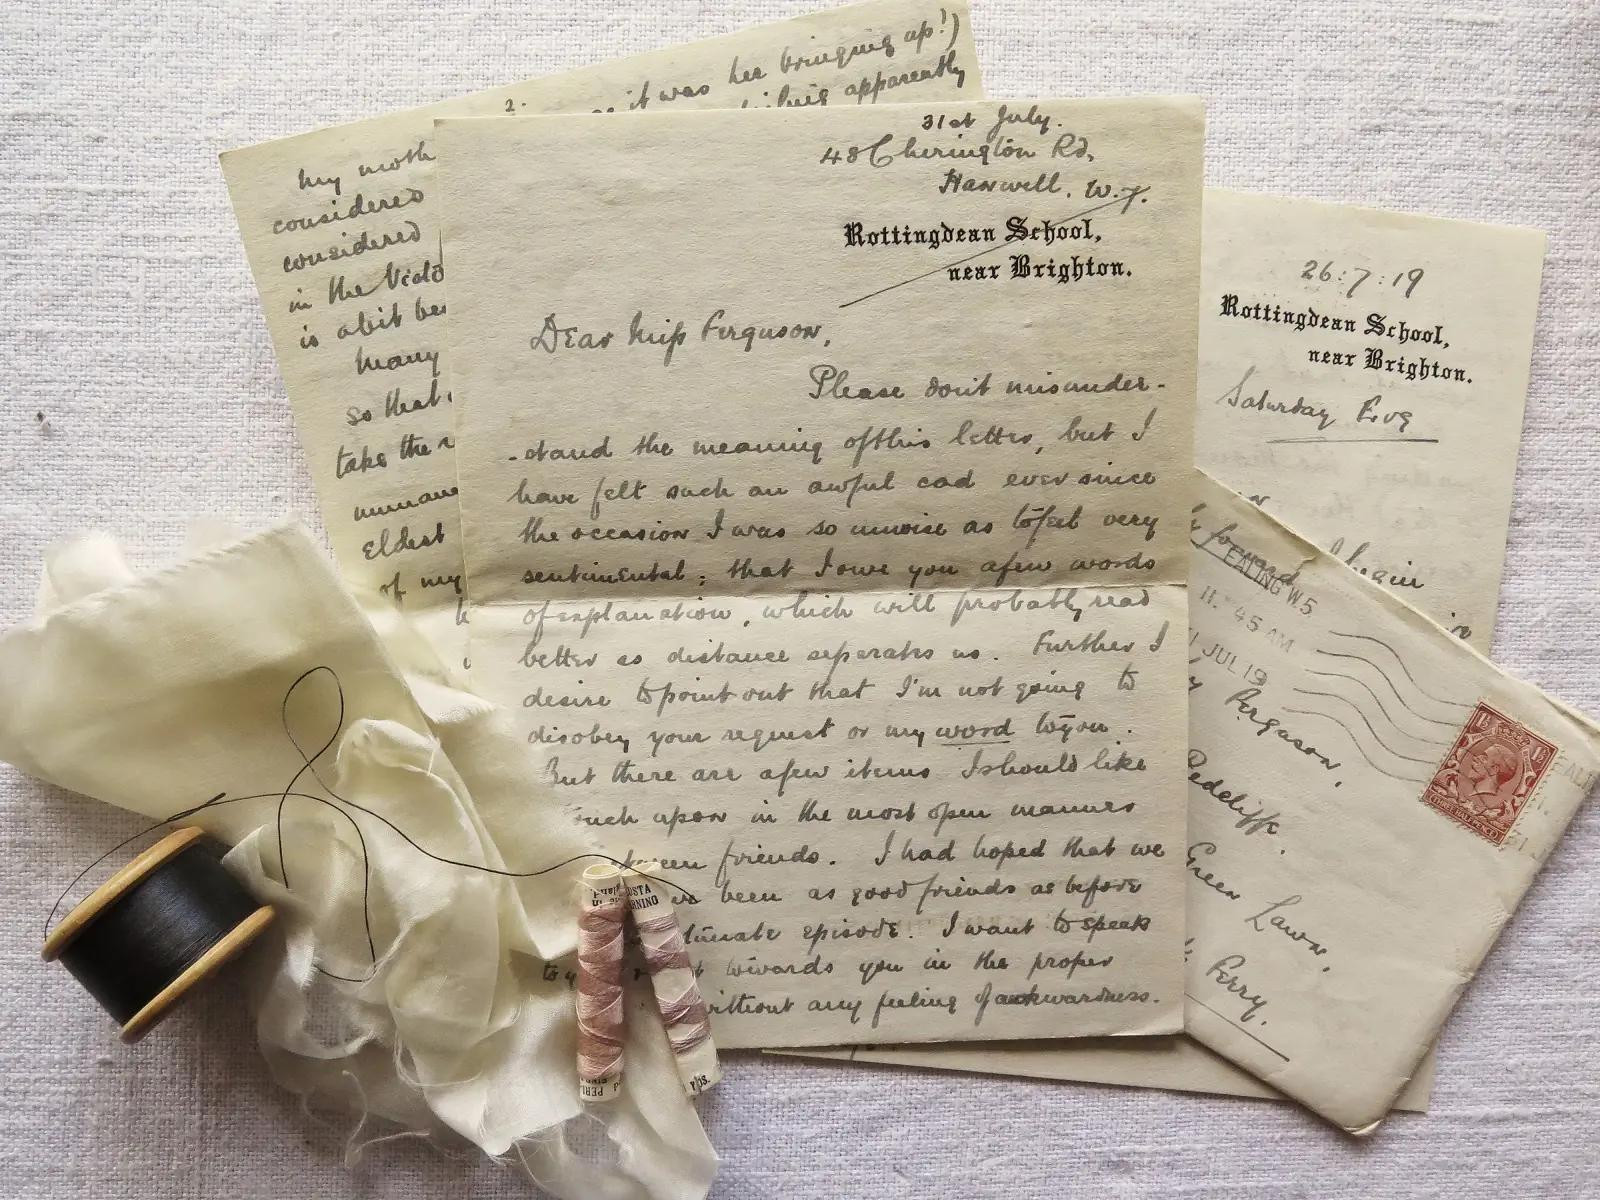 2.
as it was her bringing up!)
apparently
my moth
considered
considered
in the Victo
is a bit be
Many
so that
take the
Eldest
of my
31st July.
48 Cherington Rd,
Hanwell. W.7.
Rottingdean School,
near Brighton.
Dear Miss Ferguson,
Please don't misunder-
-stand the meaning of this letter, but I
have felt such an awful cad ever since
the occasion I was so unwise as to feel very
sentimental; that I owe you a few words
of explanation, which will probably read
better as distance separates us. Further I
desire to point out that I'm not going to
disobey your request or my word to you.
But there are a few items I should like
touch upon in the most open manner
between friends. I had hoped that we
have been as good friends as before
episode. I want to speak
to y towards you in the proper
without any feeling of awkwardness.
26:7:19
Rottingdean School,
near Brighton.
Saturday Evg
again
forward
EALING W.5
11.45 AM
31 JUL 19
Ferguson,
Redcliffe.
Green Lawn,
Ferry.
THREE HALFPENCE
OSTA
RNINO
PERL
YDS.